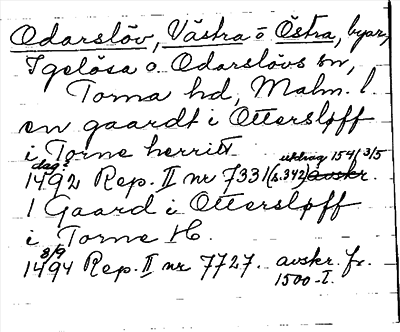 Odarslöv, Västra o Östra, byar,
Igelösa o. Odarslövs sn,
Torna hd, Malm. l.
en gaardt i Ottersløff
i Torne herritt
dag? utdrag 1541 3/5
1492 Rep. II nr 7331 (s.342) avskr.
1 Gaard i Ottersløff
i Torne H.
8/9
1494 Rep. II nr 7727. avskr. fr.
1500-t.